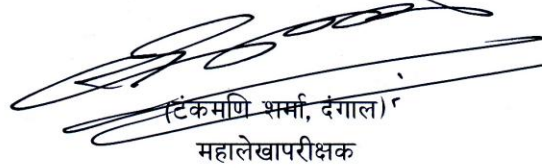 (टंकमणि शर्मा, दंगाल)
महालेखापरीक्षक